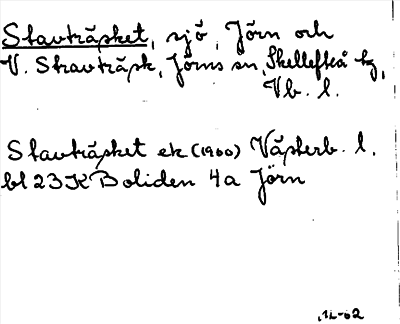 Stavträsket, sjö, Jörn och
V. Stavträsk, Jörns sn, Skellefteå kg,
Vb. l.
Stavträsket ek (1900) Västerb. l.
bl 23 K Boliden 4a Jörn